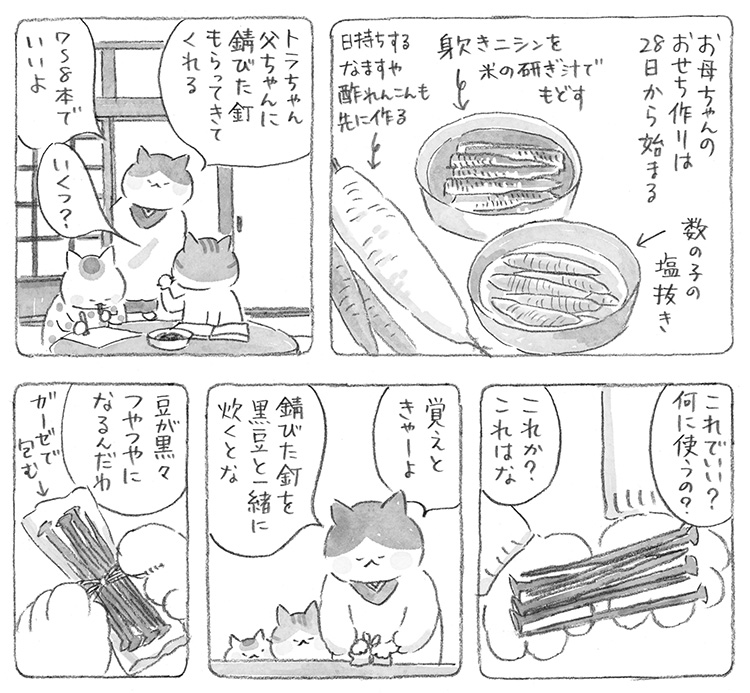 お母ちゃんの
おせち作りは
28日から始まる
身欠きニシンを
米の研ぎ汁で
もどす
日持ちする
なますや
酢れんこんも
先に作る
数の子の
塩抜き
トラちゃん
父ちゃんに
錆びた釘
もらってきて
くれる
いくつ?
7〜8本で
いいよ
これでいい?
何に使うの?
これか?
これはな
覚えと
きゃーよ
錆びた釘を
黒豆と一緒に
炊くとな
豆が黒々
つやつやに
なるんだわ
ガーゼで
包む